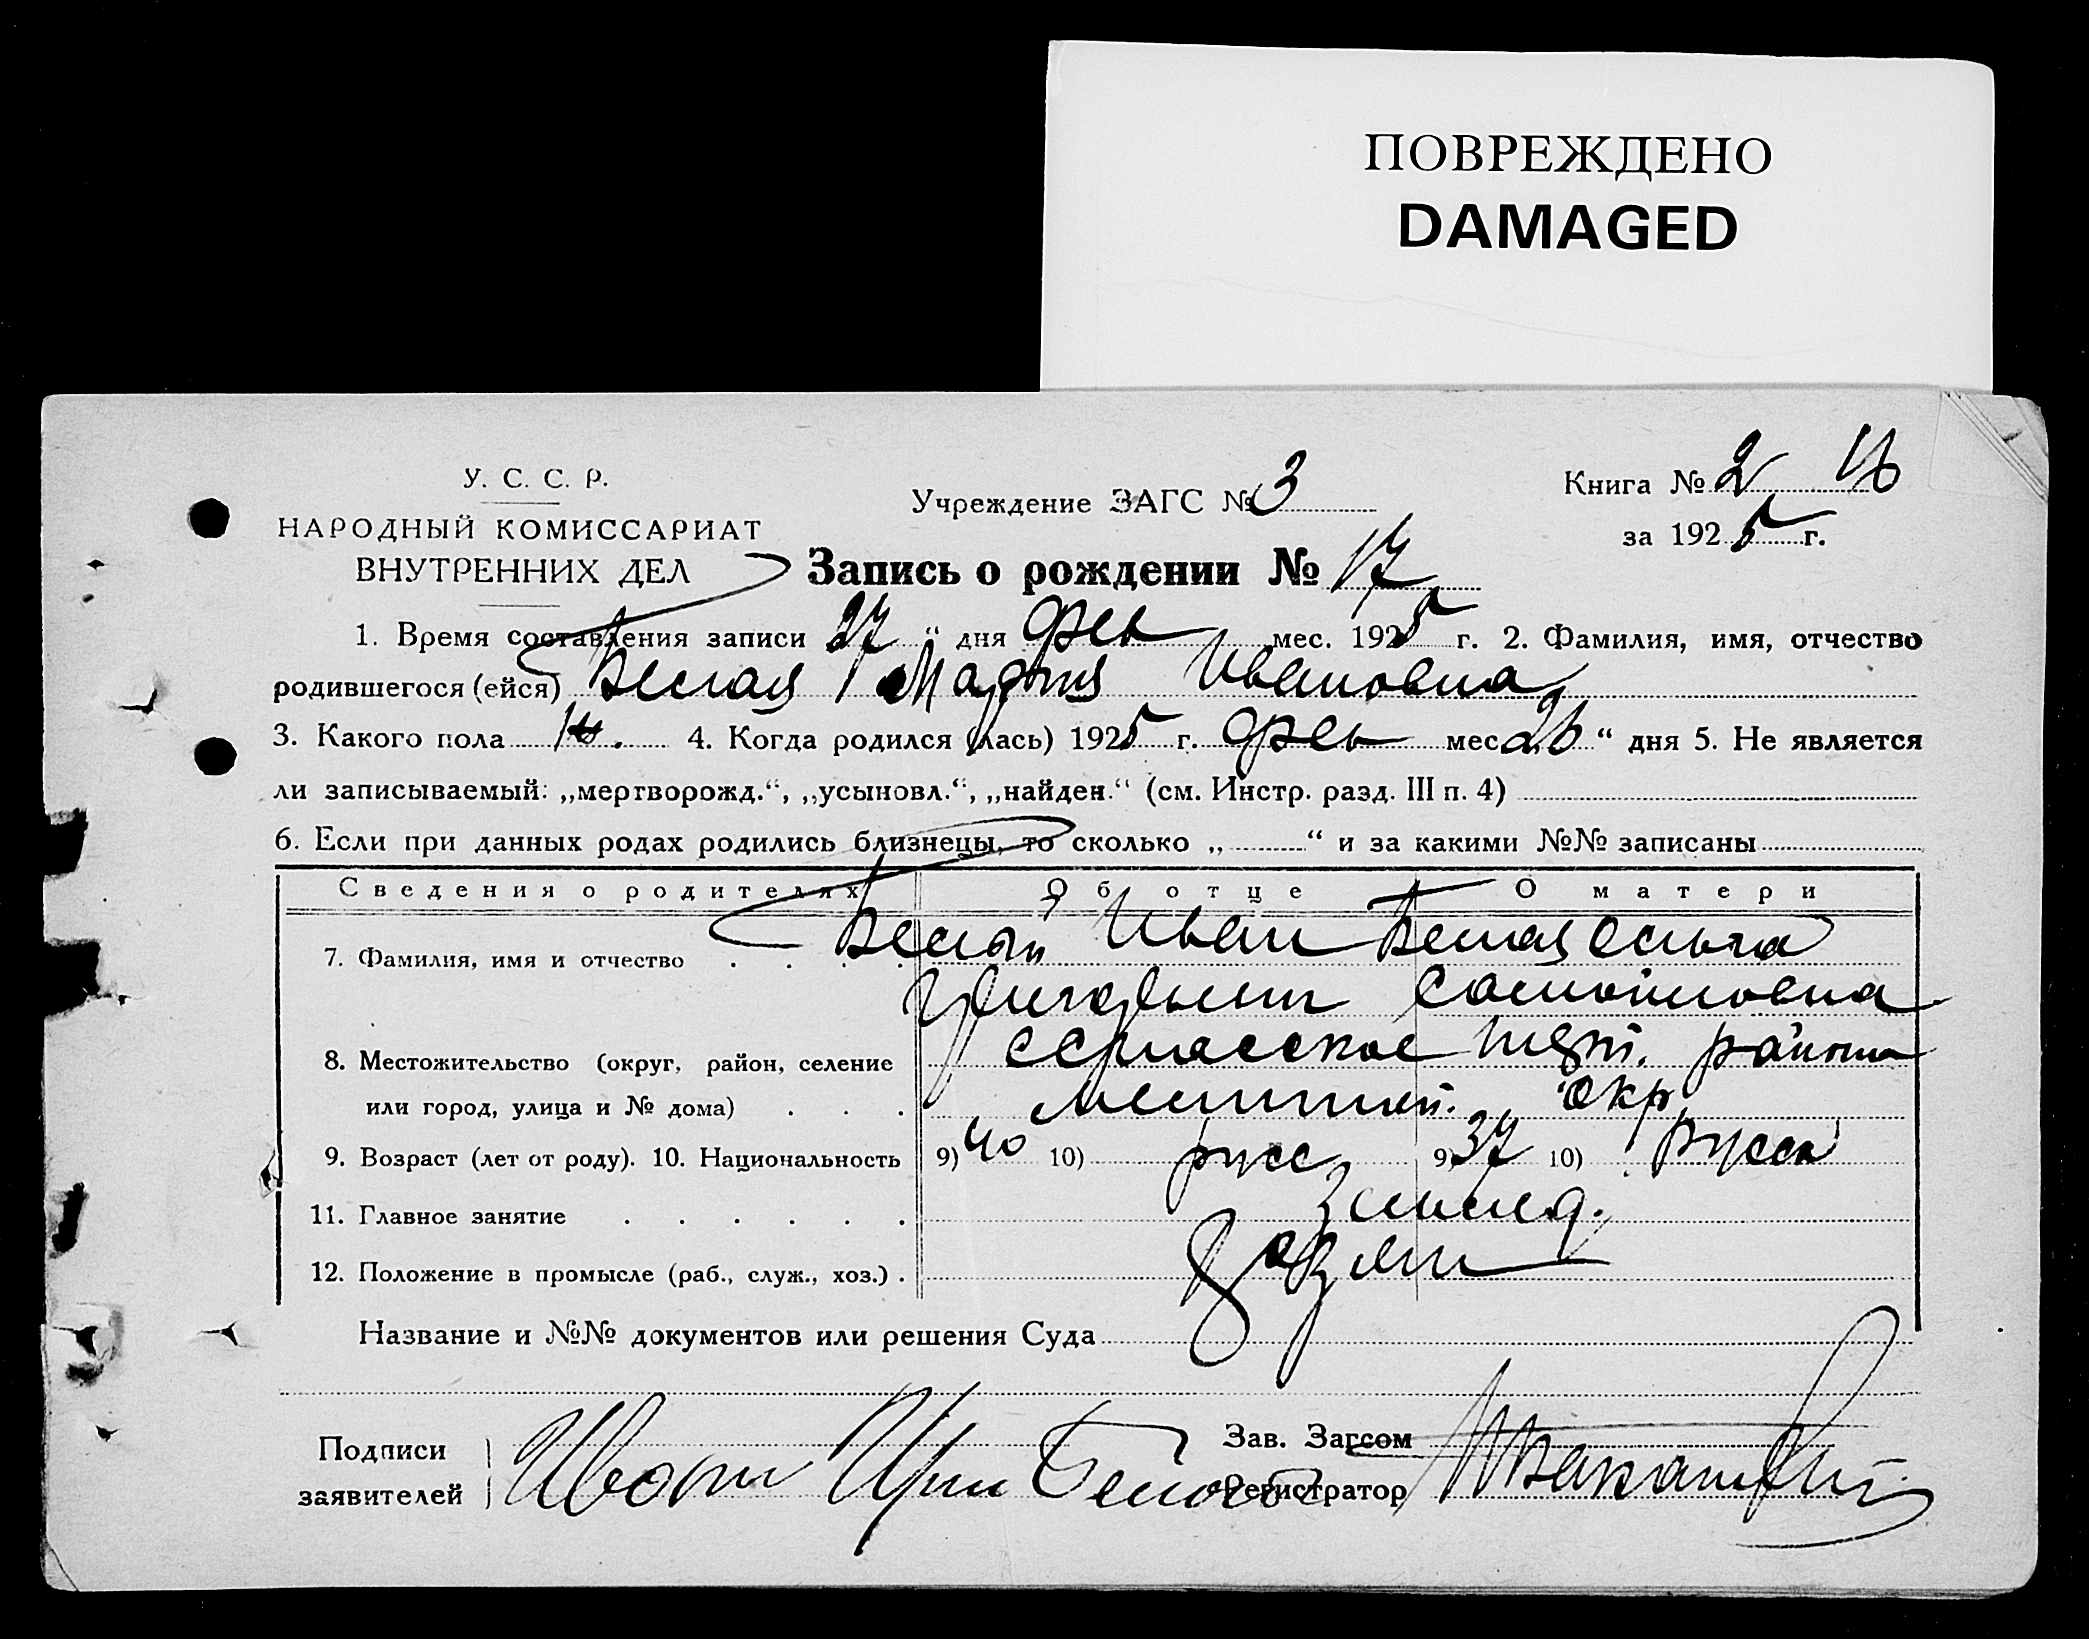 ПОВРЕЖДЕНО
DAMAGED
У. С. С. Р.
НАРОДНЫЙ КОМИССАРИАТ
ВНУТРЕННИХ ДЕЛ
Учреждение ЗАГС № 3
Книга № 2
за 1925 г.
Запись о рождении № 17
1. Время составления записи 27 “ дня фев мес. 1925 г. 2. Фамилия, имя, отчество
родившегося (ейся) Белая Мария Ивановна
3. Какого пола ж. 4. Когда родился (лась) 1925 г. фев мес. 26 “ дня 5. Не является
ли записываемый: „мертворожд.“, „усыновл.“, „найден.“ (см. Инстр. разд. III п. 4)
6. Если при данных родах родились близнецы, то сколько „ “ и за какими №№ записаны
Сведения о родителях Об отце О матери
7. Фамилия, имя и отчество Белый Иван Белая Ольга
Григорьевич Самойловна
8. Местожительство (округ, район, селение района
или город, улица и № дома) окр.
9. Возраст (лет от роду). 10. Национальность 9) 40 10) русс 9) 37 10) русск
11. Главное занятие землед.
12. Положение в промысле (раб., служ., хоз.)
Название и №№ документов или решения Суда
Подписи
заявителей
Зав. Загсом
Регистратор